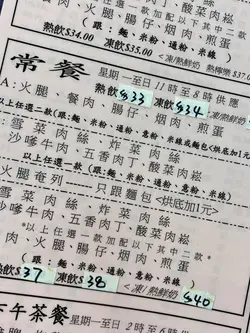 火腿、腸仔、煙肉、酸菜肉崧
(跟:麵、米粉、通粉、米線)
熱飲$34.00
凍飲$35.00
<凍/熱鮮奶 熱檸樂 $37
常餐 星期一至日 11時至8時供應
熱飲$33 凍飲$34 凍熱鮮奶
A:火腿、餐肉、腸仔、煙肉、煎蛋
以上任選二款(跟:麵、米粉、通粉、意粉、米線或麵包<烘底加1元>
雪菜肉絲、炸菜肉絲
沙嗲牛肉、五香肉丁、酸菜肉崧
以上任選一款(跟:麵、米粉、通粉、意粉、米線)
火腿奄列----只跟麵包<烘底加1元>
雪菜肉絲、炸菜肉絲
沙嗲牛肉、五香肉丁、酸菜肉崧
*以上任選一款加配以下其中二款*
肉、火腿、腸仔、煙肉、煎蛋
(跟:麵、米粉、通粉、意粉、米線)
熱飲$37 凍飲$38 <凍/熱鮮奶 $40
下午茶餐 星期一至日 2時至6時